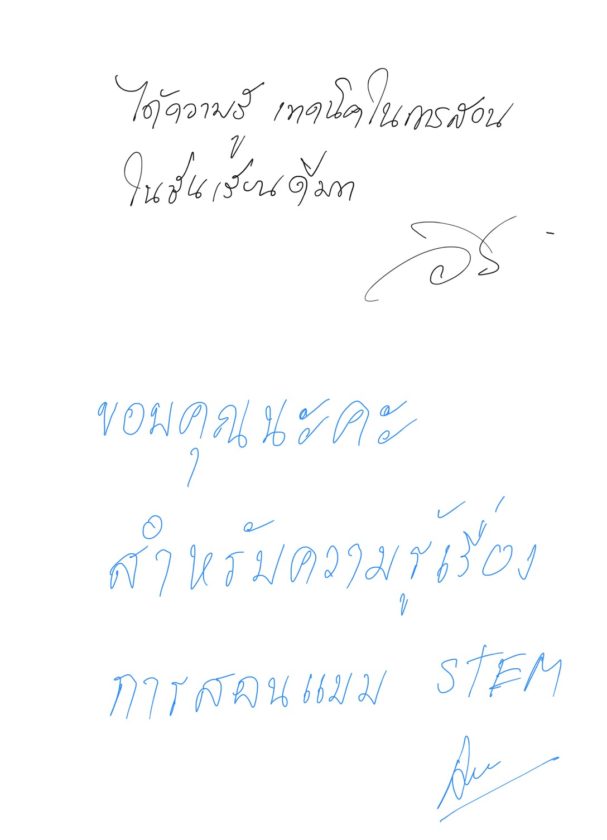 ได้ความรู้ เทคนิคในการสอน
ในชั้นเรียนดีมาก
ขอบคุณนะคะ
สำหรับความรู้เรื่อง
การสอนแบบ STEM